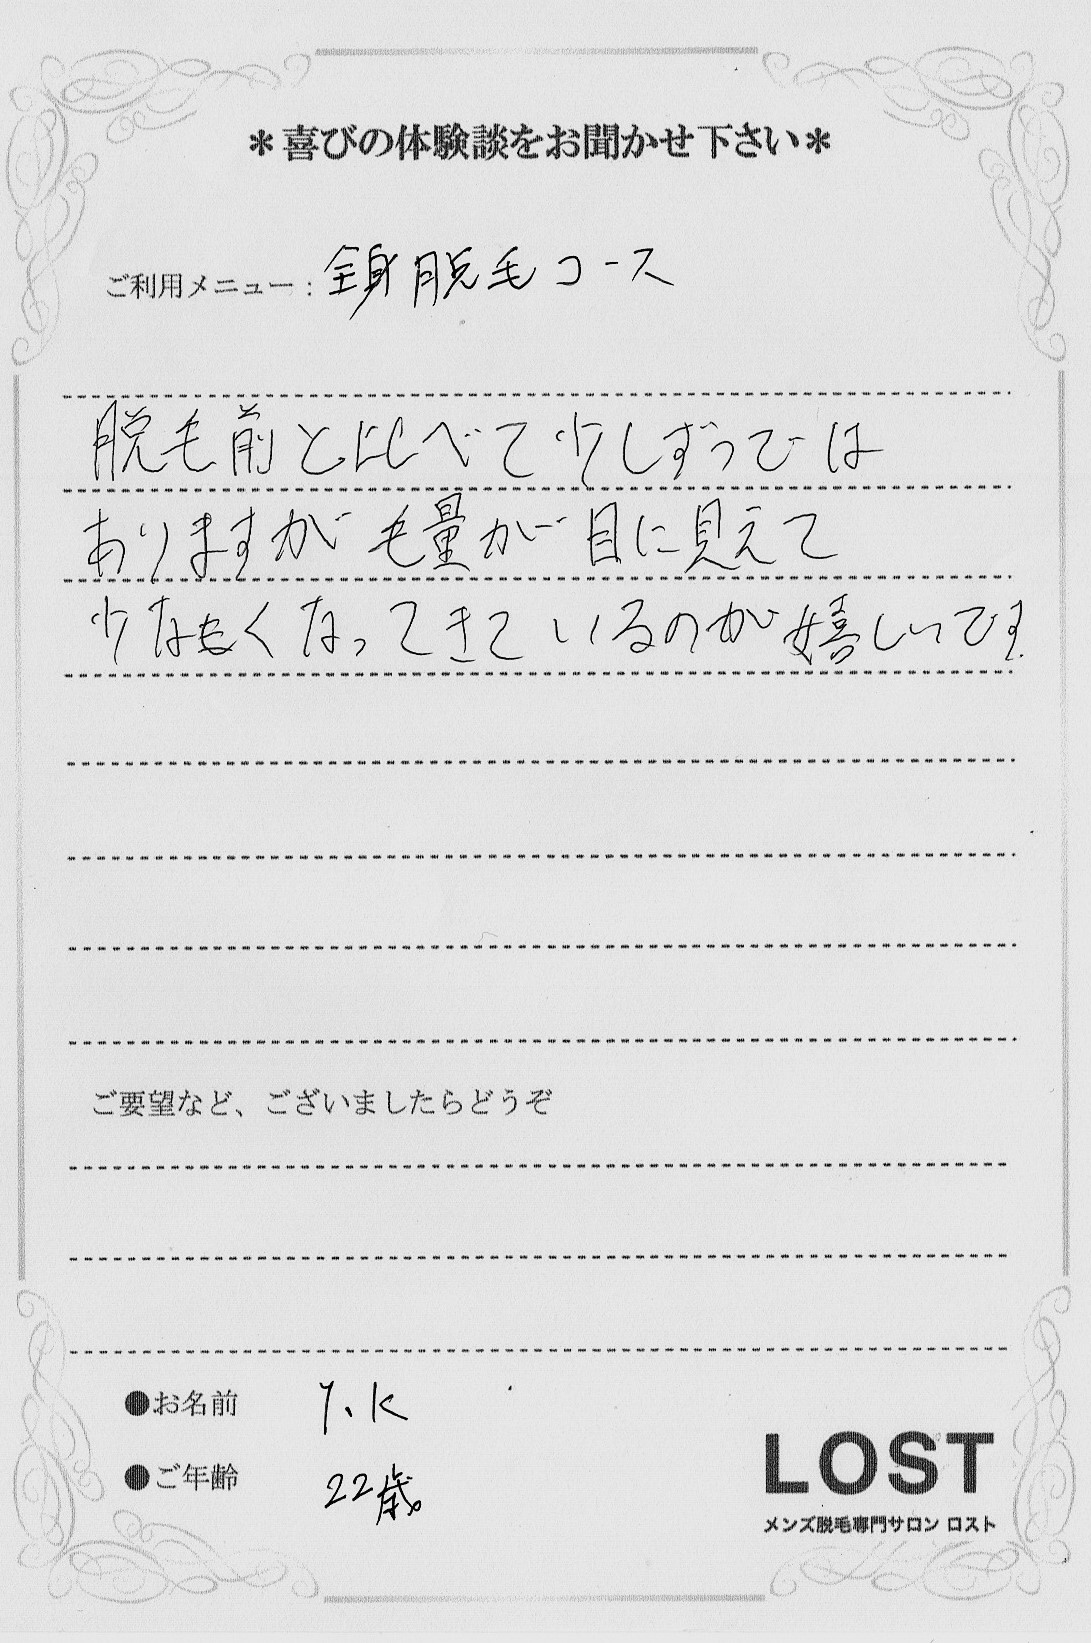 ＊喜びの体験談をお聞かせ下さい＊
ご利用メニュー：全身脱毛コース
脱毛前と比べて少しずつでは
ありますが毛量が目に見えて
少なくなってきているのが嬉しいです
ご要望など、ございましたらどうぞ
●お名前 Y.K
●ご年齢 22歳。
LOST
メンズ脱毛専門サロン ロスト